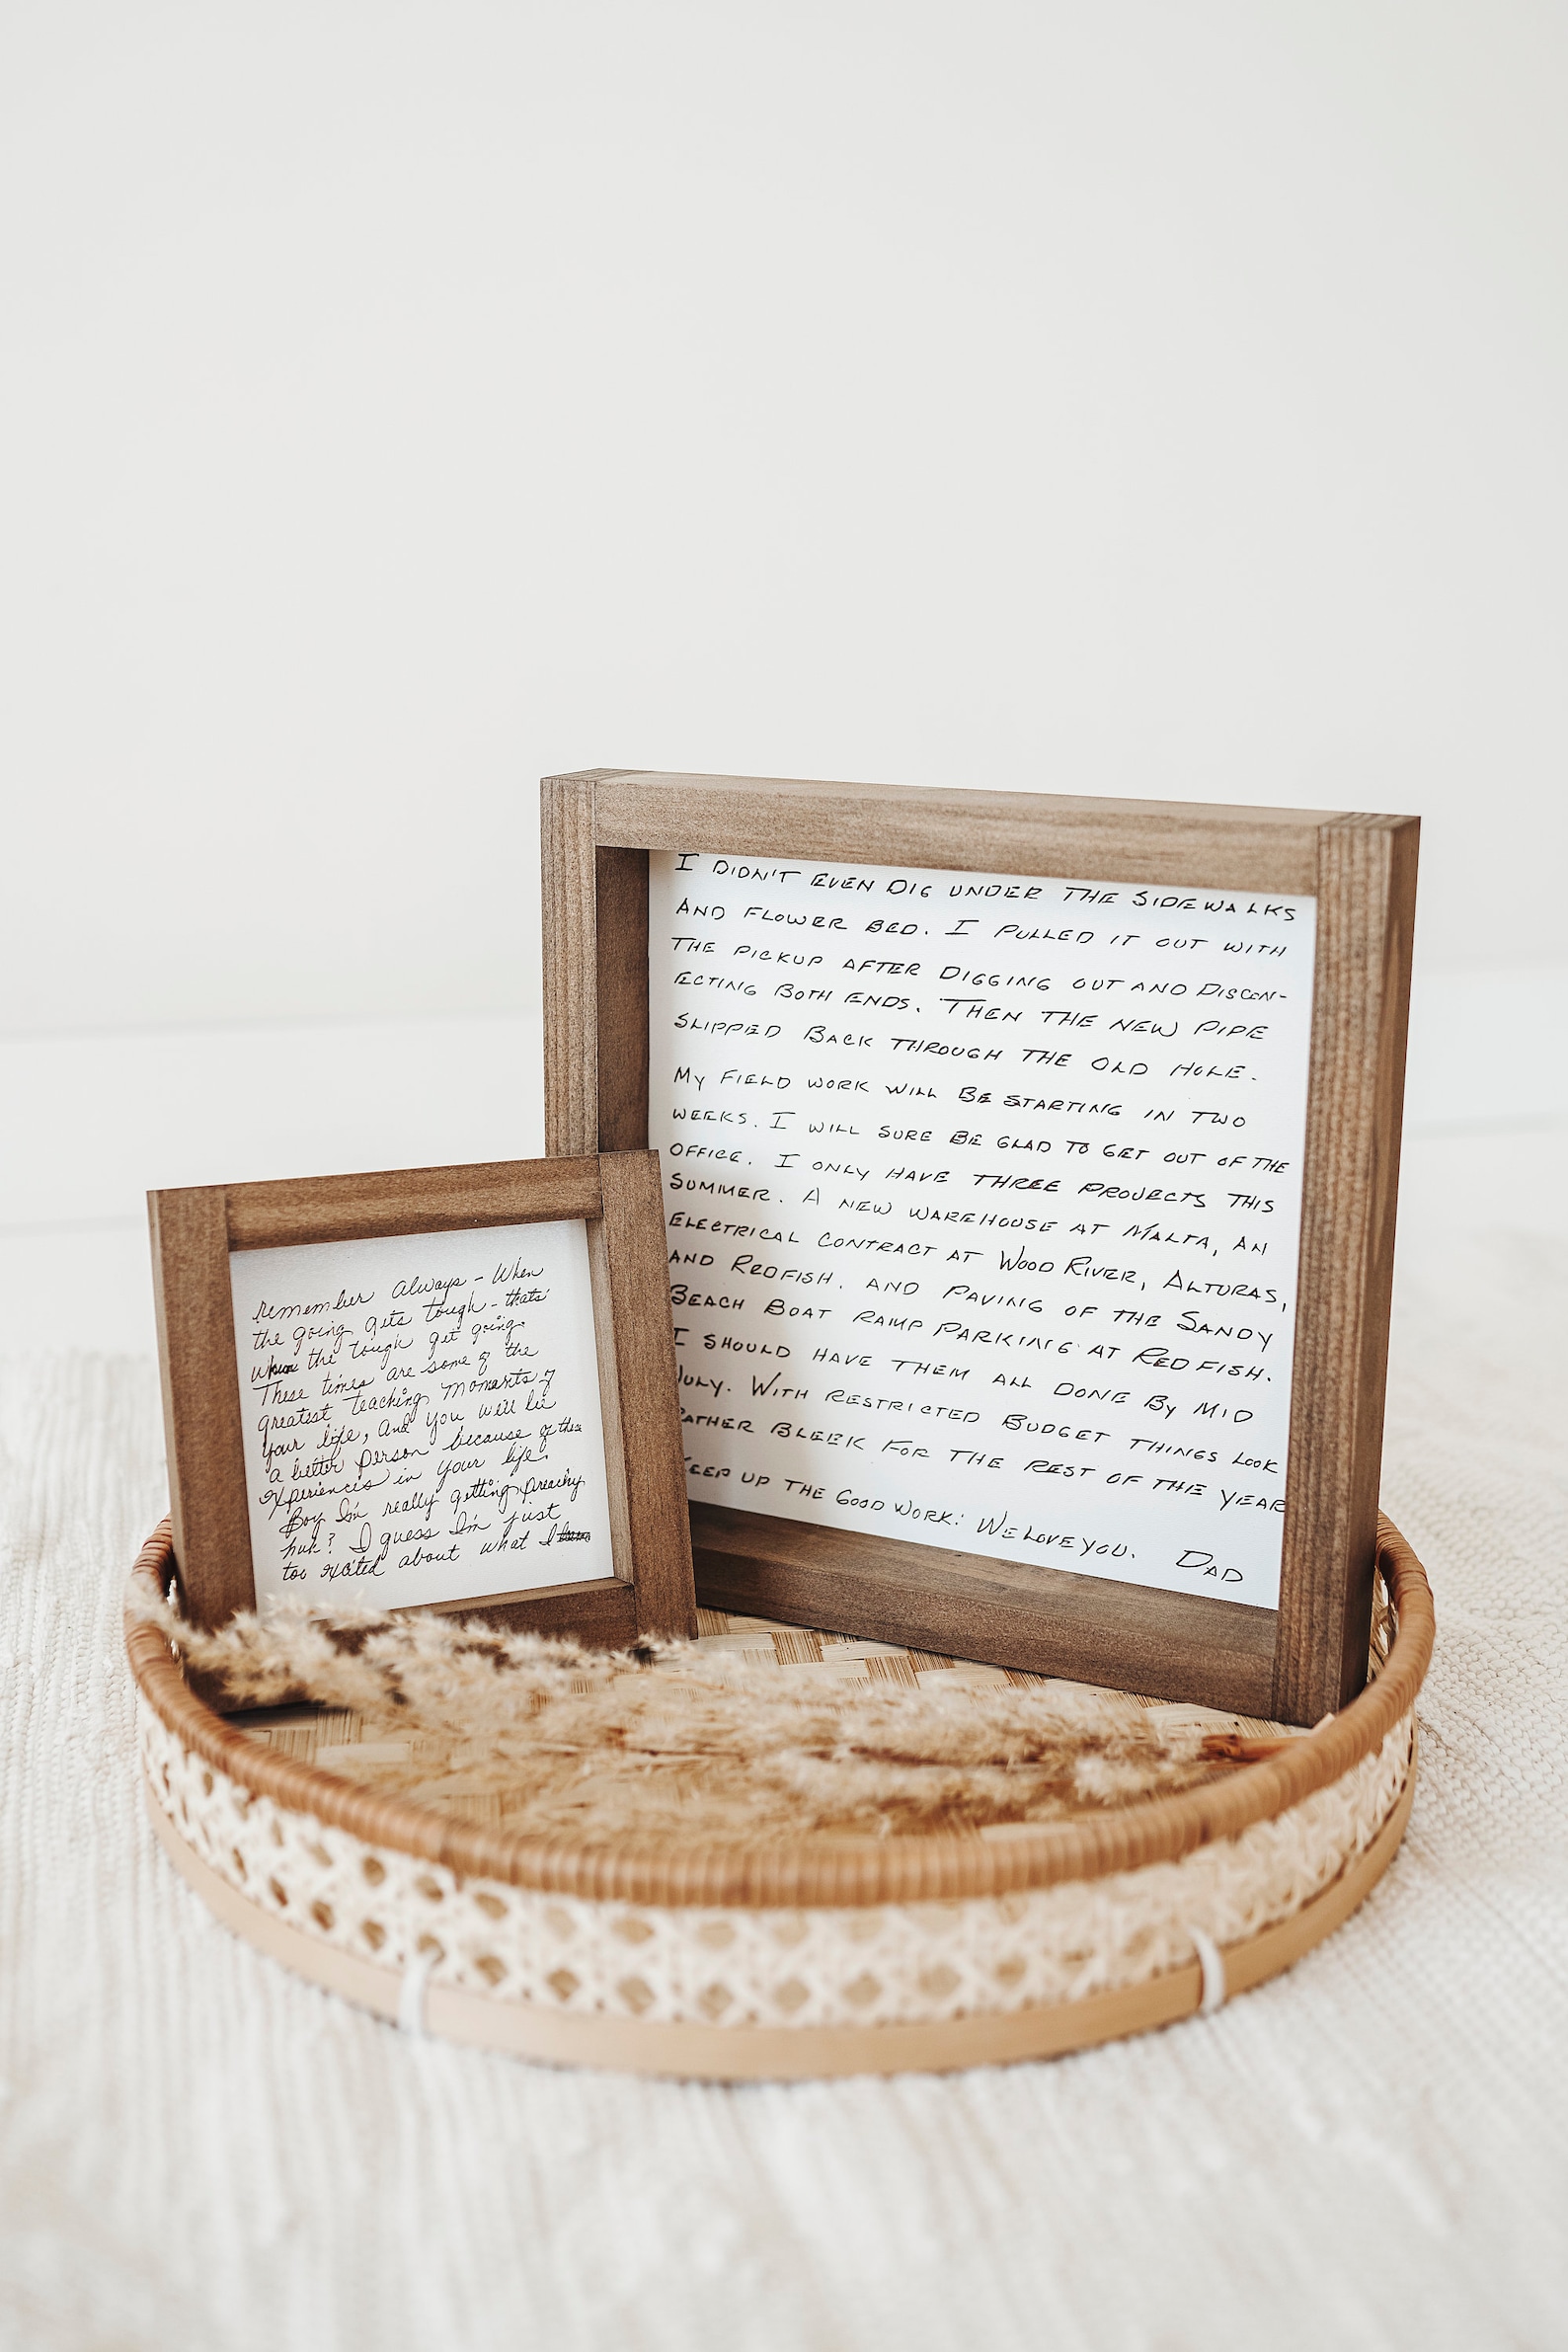 remember always - When
the going gets tough - thats'
when the tough get going.
These times are some of the
greatest teaching moments of
your life, and you will be
a better person because of these
experiences in your life.
Boy I'm really getting preachy
huh? I guess I'm just
too excited about what I
I DIDN'T EVEN DIG UNDER THE SIDEWALKS
AND FLOWER BED. I PULLED IT OUT WITH
THE PICKUP AFTER DIGGING OUT AND DISCON-
ECTING BOTH ENDS. THEN THE NEW PIPE
SLIPPED BACK THROUGH THE OLD HOLE.
MY FIELD WORK WILL BE STARTING IN TWO
WEEKS. I WILL SURE BE GLAD TO GET OUT OF THE
OFFICE. I ONLY HAVE THREE PROJECTS THIS
SUMMER. A NEW WAREHOUSE AT MALTA, AN
ELECTRICAL CONTRACT AT WOOD RIVER, ALTURAS,
AND REDFISH. AND PAVING OF THE SANDY
BEACH BOAT RAMP PARKING AT REDFISH.
I SHOULD HAVE THEM ALL DONE BY MID
JULY. WITH RESTRICTED BUDGET THINGS LOOK
RATHER BLEEK FOR THE REST OF THE YEAR
KEEP UP THE GOOD WORK! WE LOVE YOU. DAD